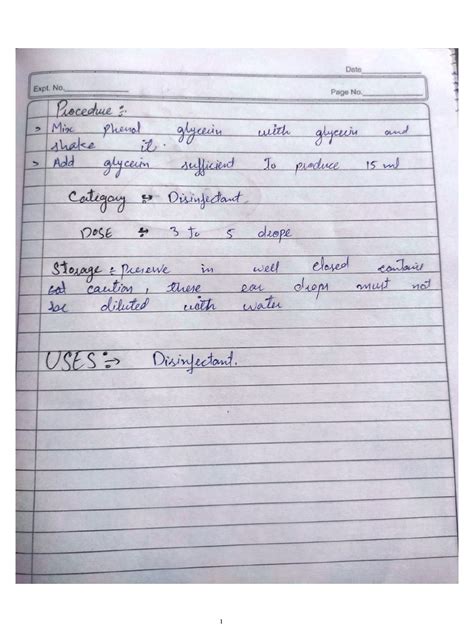 Date
Expt. No.
Page No.
Procedure :-
> Mix phenol glycerin with glycerin and
shake it.
> Add glycerin sufficient To produce 15 ml
Category :- Disinfectant
DOSE :- 3 to 5 drops
Storage : Preserve in well closed container
cat caution, these ear drops must not
be diluted with water
USES :-> Disinfectant.
1